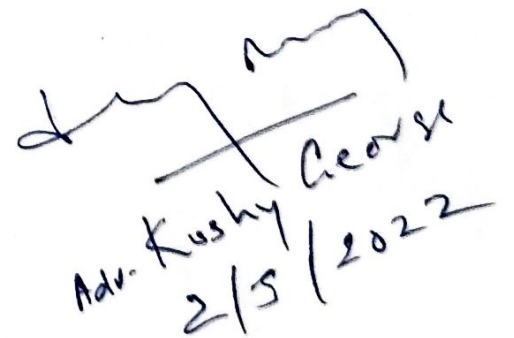 Adv. Koshy George
2/5/2022